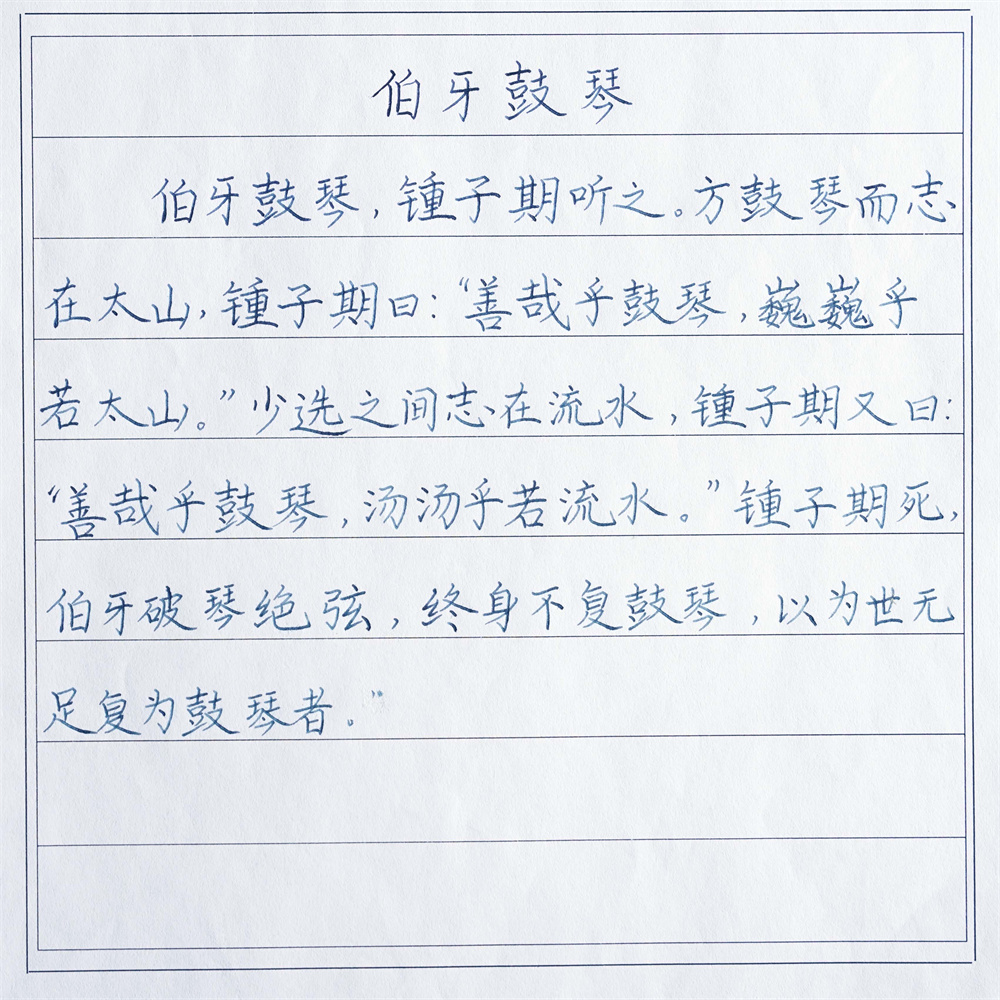 伯牙鼓琴
伯牙鼓琴，锺子期听之。方鼓琴而志
在太山，锺子期曰：“善哉乎鼓琴，巍巍乎
若太山。”少选之间志在流水，锺子期又曰：
“善哉乎鼓琴，汤汤乎若流水。”锺子期死，
伯牙破琴绝弦，终身不复鼓琴，以为世无
足复为鼓琴者。”